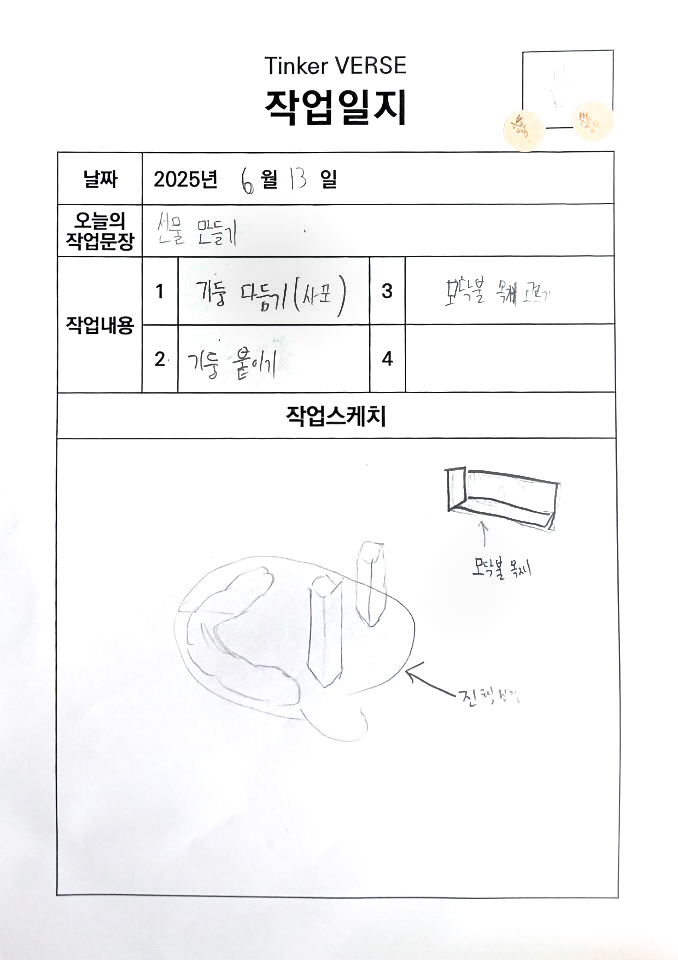 Tinker VERSE
작업일지
날짜 2025년 6월 13일
오늘의 작업문장 선물 만들기
작업내용
1 기둥 다듬기(사포)
3 모닥불 목재 고르기
2 기둥 붙이기
4
작업스케치
모닥불 목재
진척